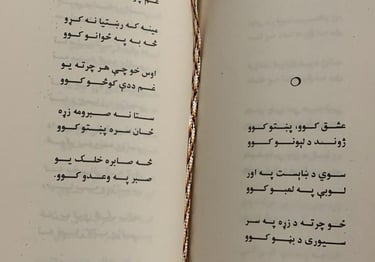 عشق کوو، پښتو کوو
ژوند د لېونو کوو
سوي د ښایست په اور
لوبې په لمبو کوو
خو چرته د زړه په سر
سیوری د بڼو کوو
مینه که رښتیا نه کړو
څه به په ځوانو کوو
اوس خو چې هر چرته یو
غم ددې کوڅو کوو
ستا نه صبرومه زړه
ځان سره پښتو کوو
څه صابره خلک یو
صبر په وعدو کوو.